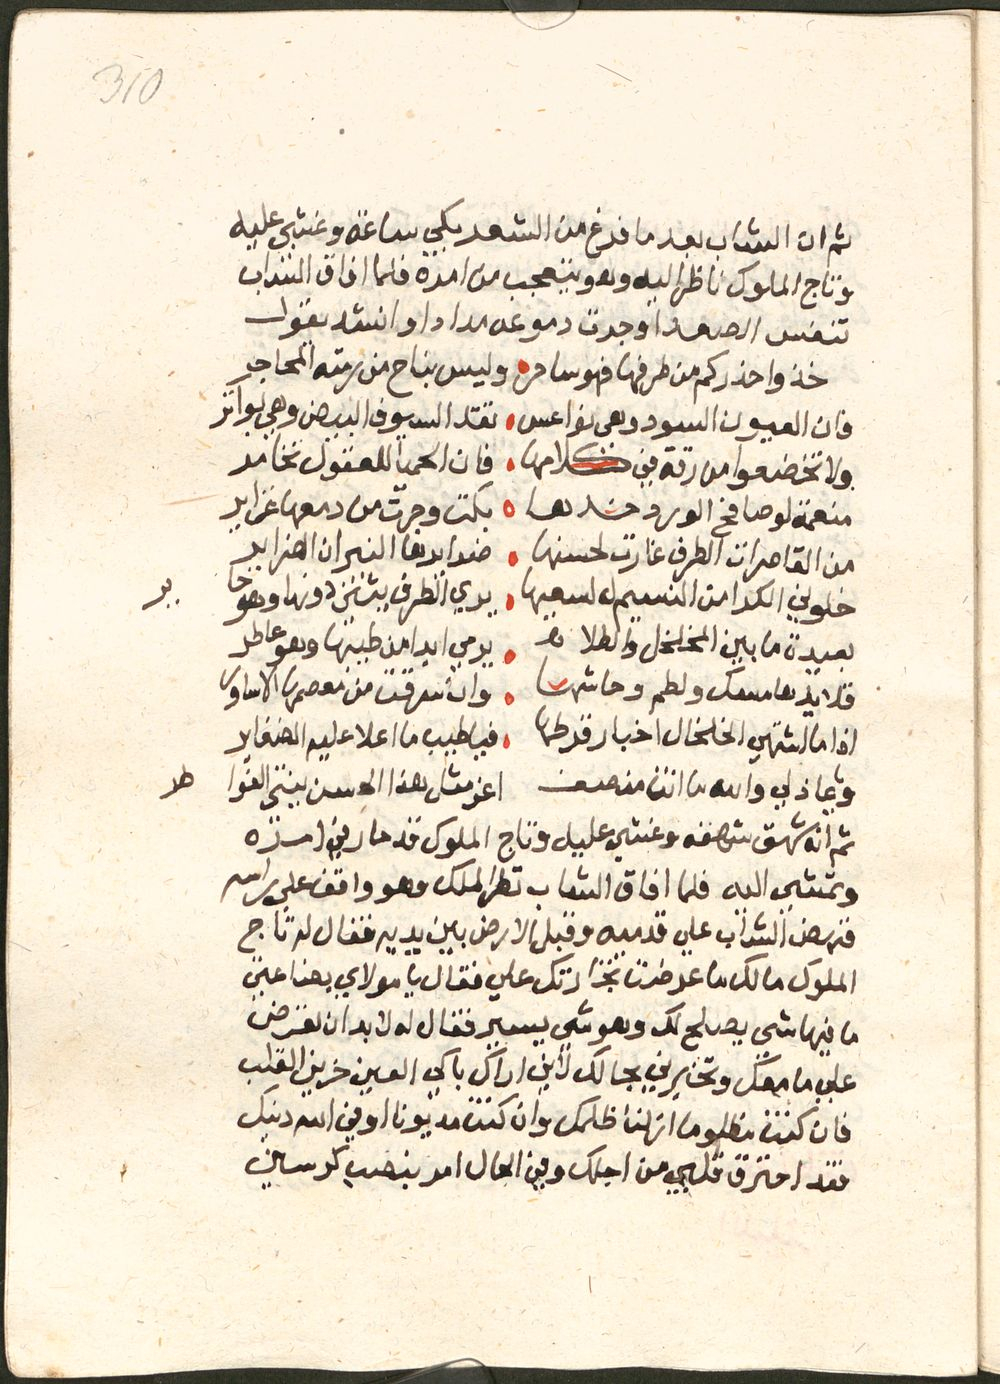 310
ثم ان الشاب بعد ما فرغ من الشعر بكي ساعة وغشي عليه
وتاج الملوك ناظر اليه وهو يتعجب من امره فلما افاق الشاب
تنفس الصعدا وجرت دموعه مدادا وانشد يقول
خذوا حذركم من طرفها فهو ساحر وليس بناج من رمته المحاجر
فان العيون السود وهي نواعس تقد السيوف البيض وهي بواتر
ولا تخضعوا من رقة في كلامها فان الحميا للعقول تخامر
منعمة لو صافح الورد خدها بكت وجرت من دمعها غزاير
من القاصرات الطرف غارت لحسنها ضدايدها النيران الضراير
خلوني الكدا من النسيم لسعيها يري الطرف يشنز دونها وهو حا
ير
بعيدة ما بين المخلخل والطلا يرمي ابدا من طيبها وهو عاطر
قلايدها مسك ولطم وحاشها وان سرقت من معصمها الاساور
اذا ما اشتهي الخلخال اخبار قرطها فيا طيب ما املا عليه الضفاير
وعاذلي والله ما انت منصف اعز مثل هذا الحسن ينثي النوا
ظر
ثم انه شهق شهقة وغشي عليه وتاج الملوك قد حار في امره
وتمشي اليه فلما افاق الشاب نظر الملك وهو واقف علي راسه
فنهض الشاب علي قدميه وقبل الارض بين يديه فقال له تاج
الملوك مالك ما عرضت تجارتك علي فقال يا مولاي بضاعتي
ما فيها شي يصلح لك وهو شي يسير فقال له لا بد ان تعرض
علي ما معك وتخبرني بحالك لاني اراك باكي العين حزين القلب
فان كنت مظلوما ازلنا ظلمك وان كنت مديونا اوفي الله دينك
فقد احترق قلبي من اجلك وفي الحال امر بنصب كرسين